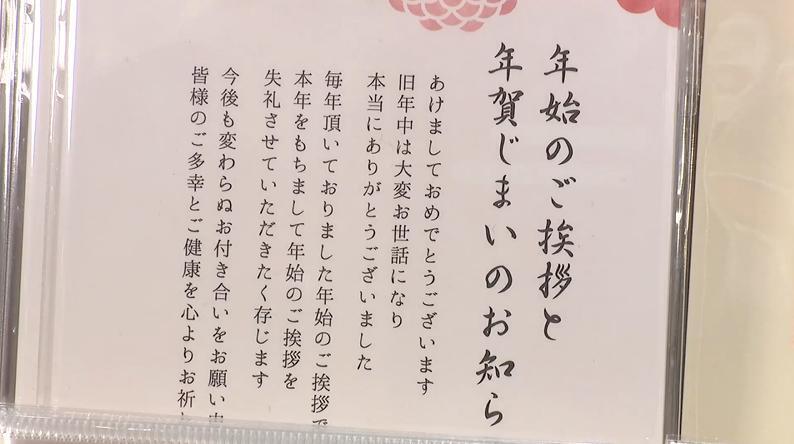 年始のご挨拶と
年賀じまいのお知ら
あけましておめでとうございます
旧年中は大変お世話になり
本当にありがとうございました
毎年頂いておりました年始のご挨拶で
本年をもちまして年始のご挨拶を
失礼させていただきたく存じます
今後も変わらぬお付き合いをお願い
皆様のご多幸とご健康を心よりお祈